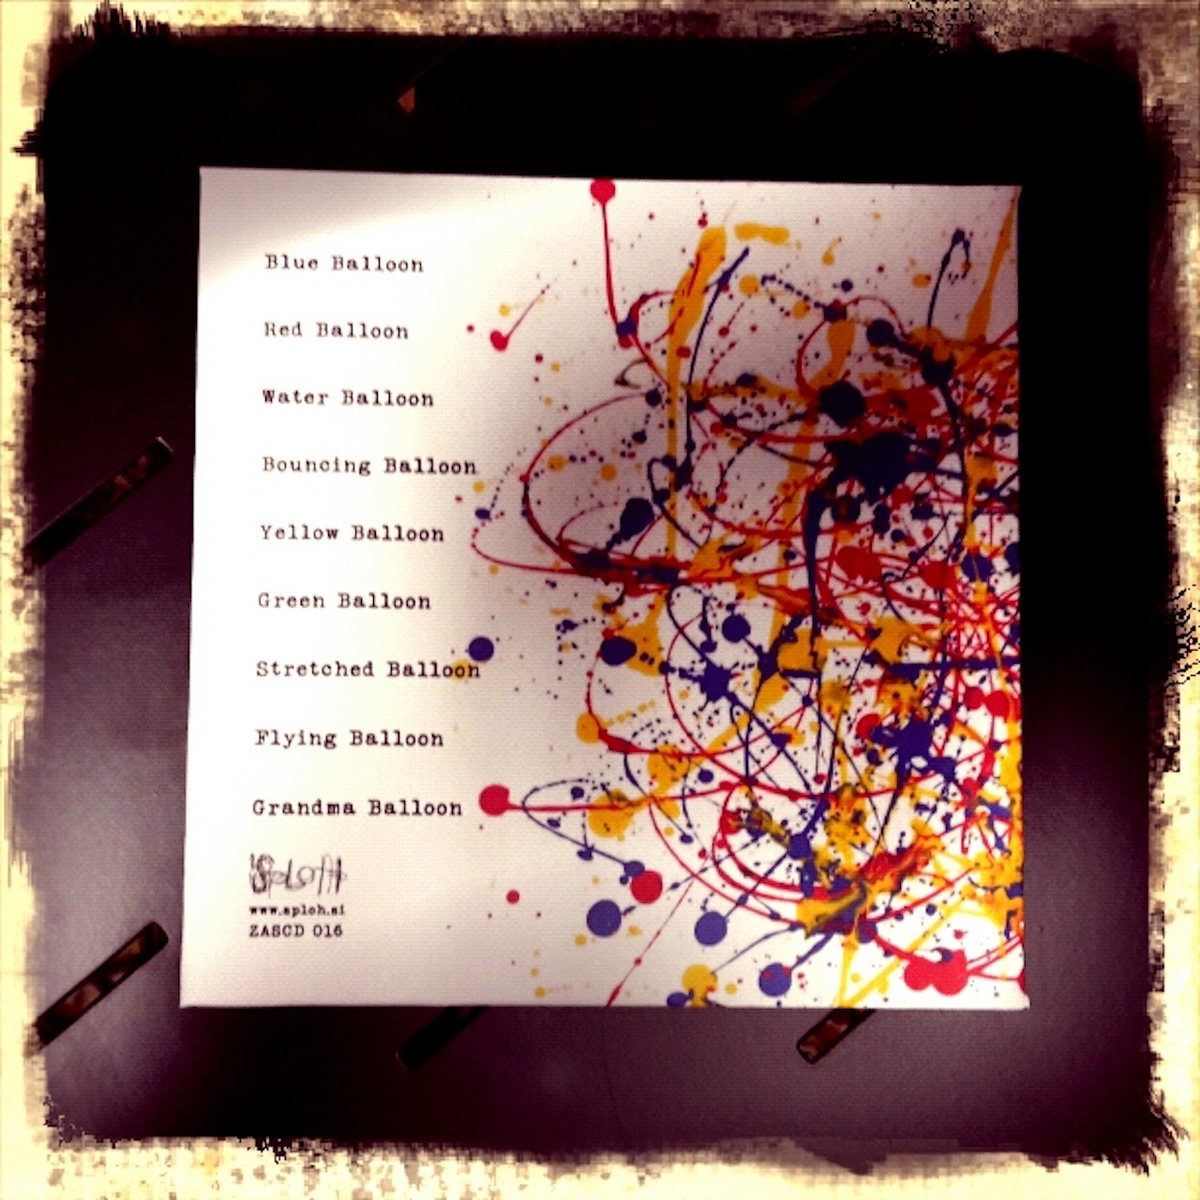 Blue Balloon
Red Balloon
Water Balloon
Bouncing Balloon
Yellow Balloon
Green Balloon
Stretched Balloon
Flying Balloon
Grandma Balloon
Sploh
www.sploh.si
ZASCD 016